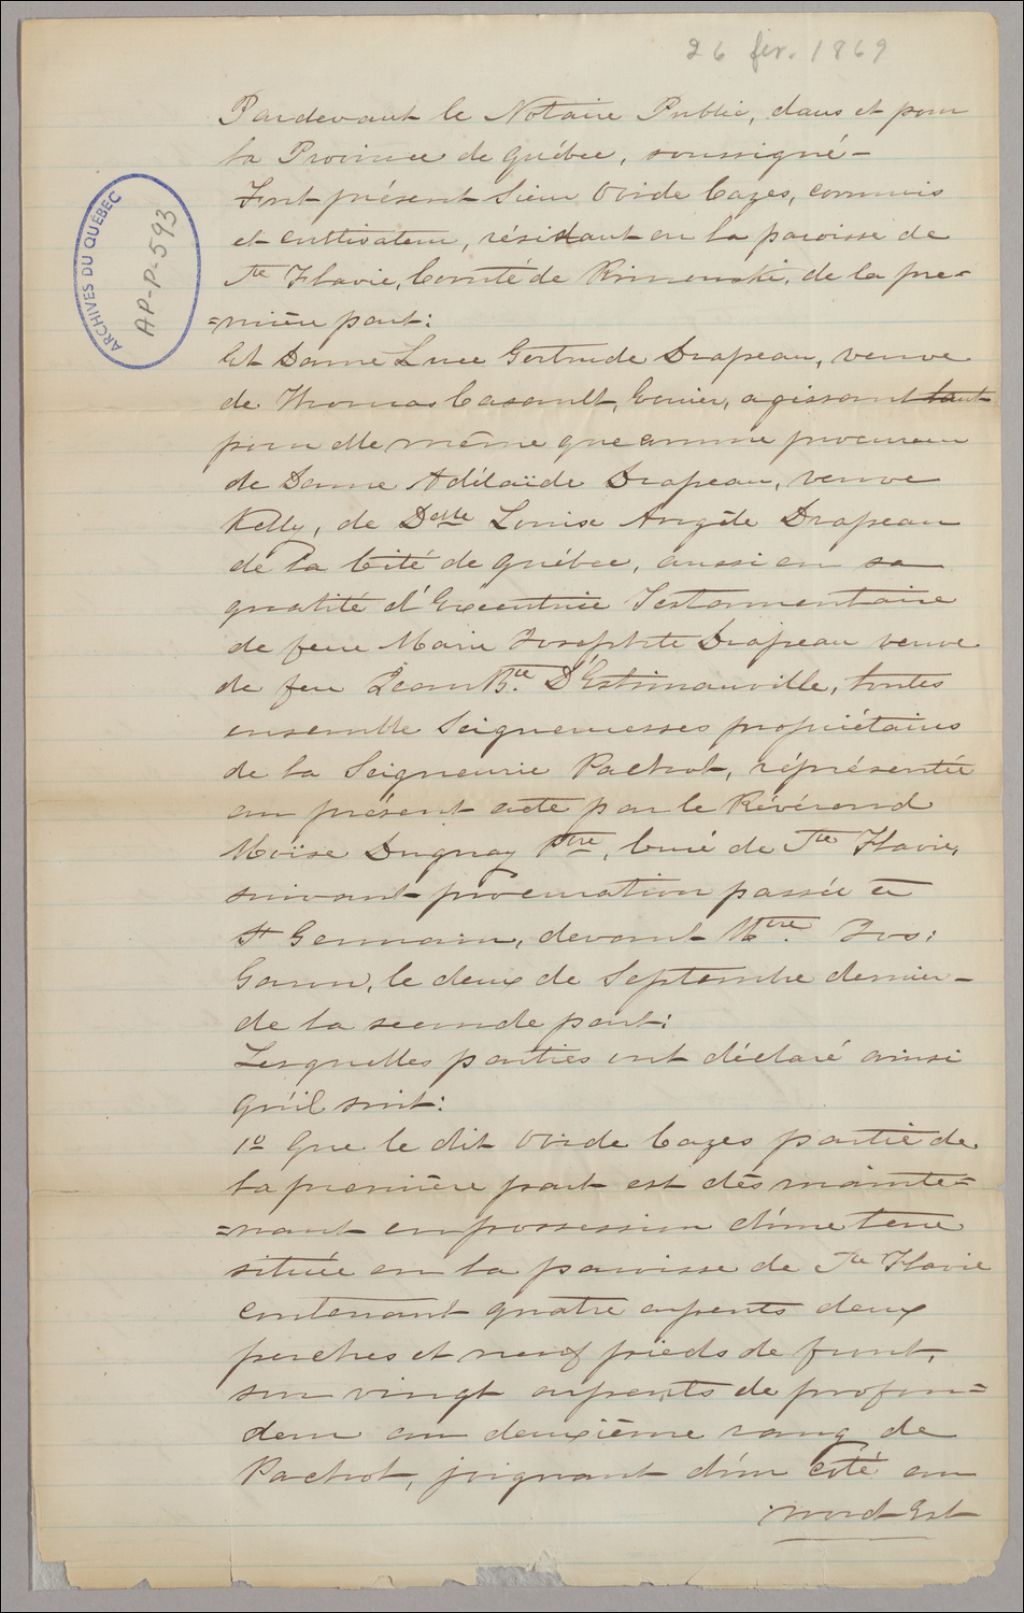 26 fév. 1869
ARCHIVES DU QUÉBEC
AP-P-593
Pardevant le Notaire Public, dans et pour
la Province de Québec, soussigné –
Fut présent Sieur Ovide Cazes, commis
et cultivateur, résidant en la paroisse de
Ste Flavie, Comté de Rimouski, de la pre=
=mière part:
Et Dame Luce Gertrude Drapeau, veuve
de Thomas Casault, Ecuier, agissant tant
pour elle même que comme procureur
de Dame Adélaïde Drapeau, veuve
Kelly, de Delle Louise Angèle Drapeau
de la Cité de Québec, aussi en sa
qualité d'Exécutrice Testamentaire
de feue Marie Josephte Drapeau veuve
de feu Jean Bte. D'Estimauville, toutes
ensemble Seigneuresses propriétaires
de la Seigneurie Pachot, réprésentée
au présent acte par le Révérend
Moïse Duguay Ptre, Curé de Ste Flavie,
suivant procuration passée à
St Germain, devant Mtre. Jos:
Garon, le deux de Septembre dernier –
de la seconde part:
Lesquelles parties ont déclaré ainsi
qu'il suit:
1o Que le dit Ovide Cazes partie de
la première part est dès mainte=
=nant en possession d'une terre
située en la paroisse de Ste Flavie
contenant quatre arpents deux
perches et neuf pieds de front,
sur vingt arpents de profon=
deur au deuxième rang de
Pachot, joignant d'un côté au
nord-Est